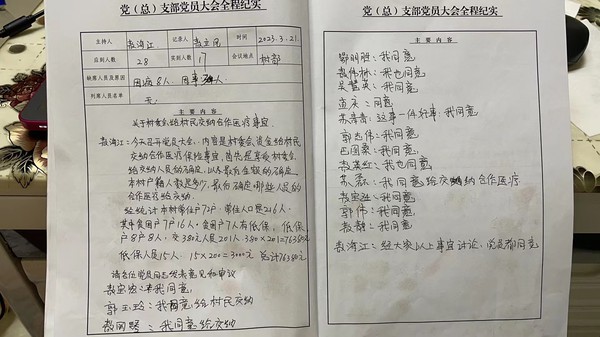 党（总）支部党员大会全程纪实
主持人 袁海江 记录人 袁立民 时间 2023.3.21
应到人数 28 实到人数 17 会议地点 村部
缺席人员及原因 因病8人，因事3人
列席人员名单 无
主要内容
关于村委会给村民交纳合作医疗事宜
袁海江：今天召开党员大会，内容是村委会资金给村民
交纳合作医疗保险事宜，首先是享受村委会
给交纳人员的确定，以及最后金额的确定
本村户籍人数是多少，最后确定哪些人员的
合作医疗给交纳。
经统计本村常住户72户，常住人口是216人，
其中贫困户7户16人，贫困户7人有低保，低保
户8户8人，交380元人员201人 380×201=76380元
低保人员15人 15×200=3000元 总计76380元
请各位党员同志发表意见和审议
袁宝宏：我同意
郭玉玲：我同意给村民交纳
我同意给交纳
党（总）支部党员大会全程纪实
主要内容
鄂明胜：我同意
袁伟林：我也同意
吴慧英：我同意
孟庆：同意
苏秀春：这事一件好事：我同意
郭志伟：我同意
巴图柔：我同意
袁英红：我也同意
苏磊：我同意给交纳合作医疗
袁宝胜：我同意
郭伟：我同意
袁静：我同意
袁海江：经大家以上事宜讨论，党员都同意